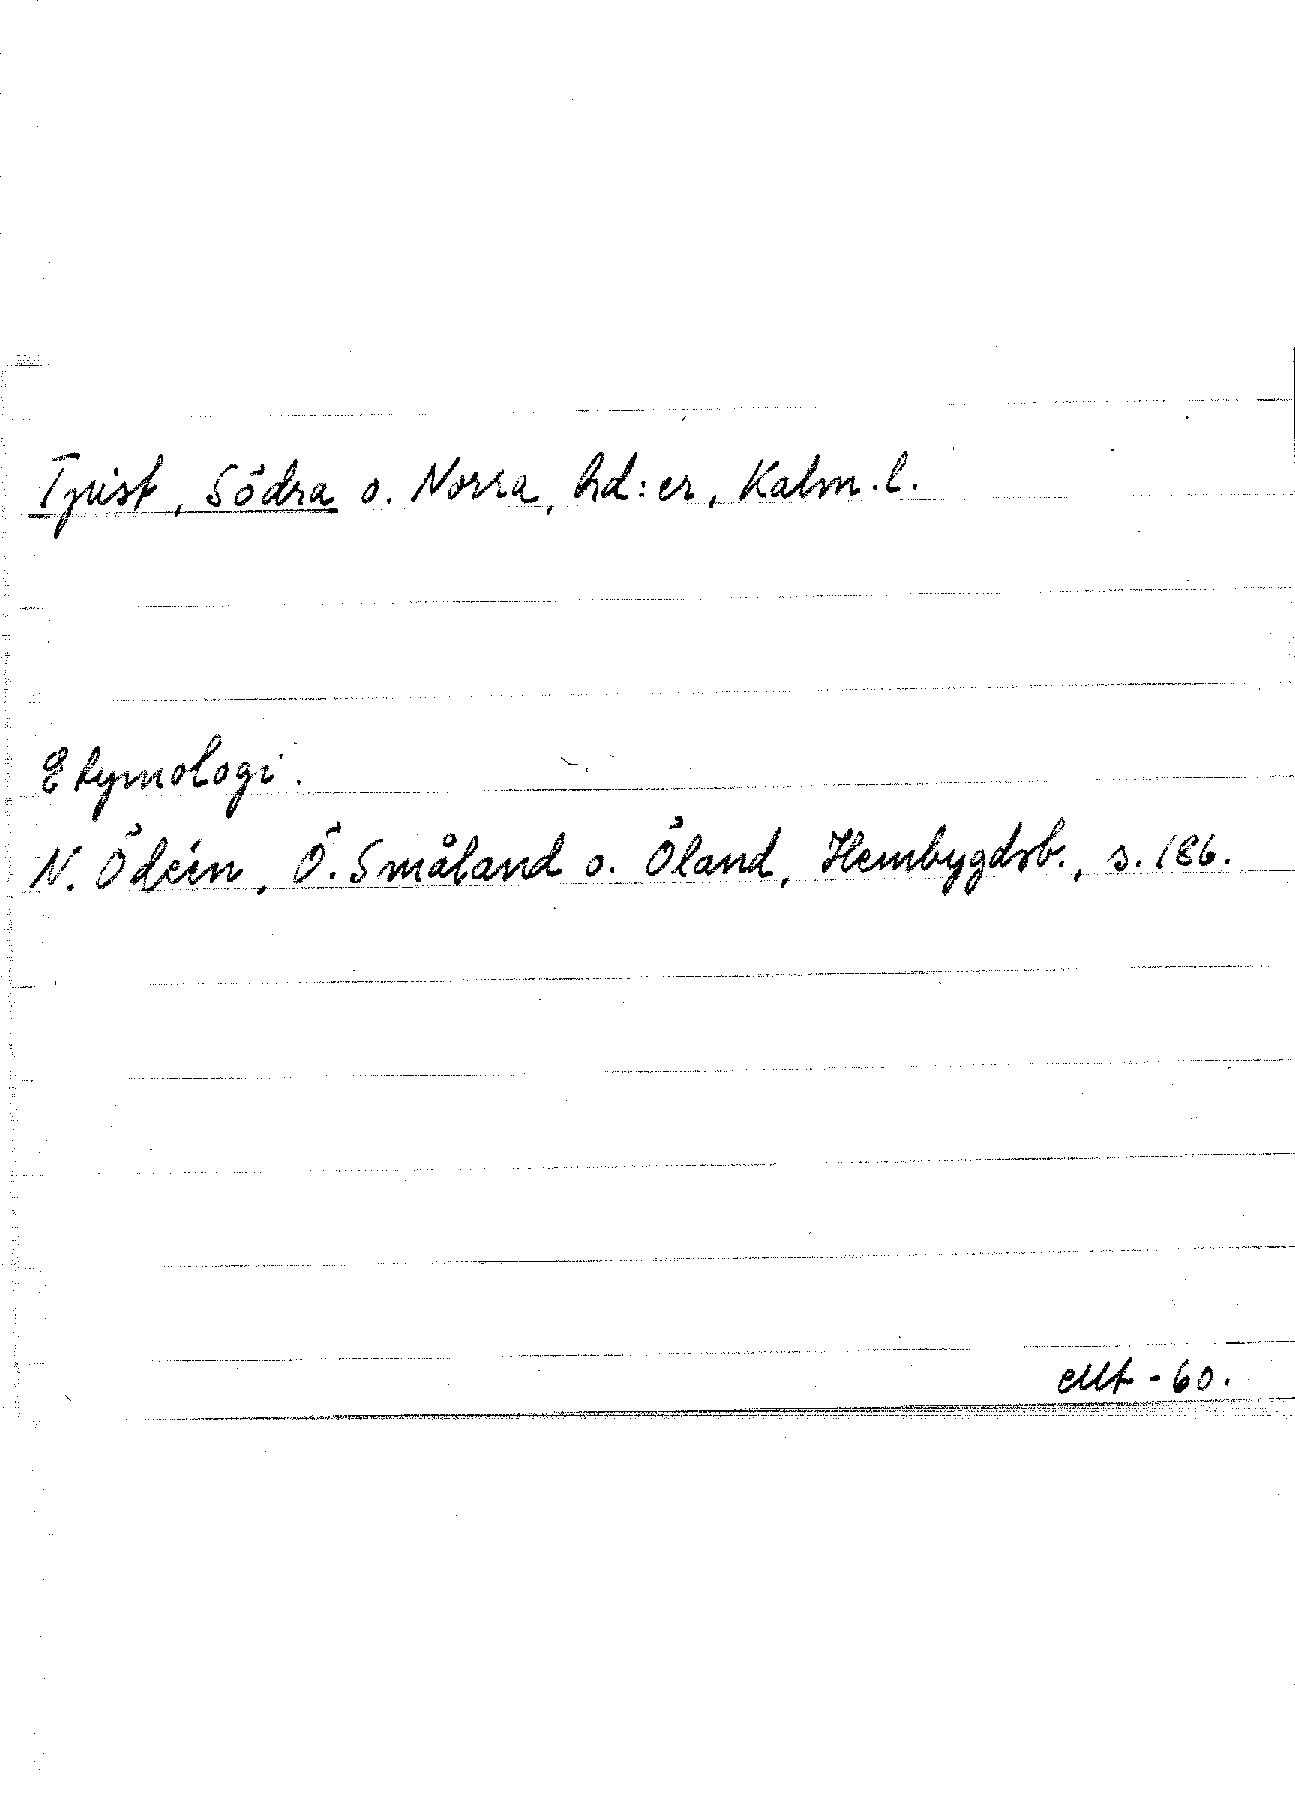 Tjust, Södra o. Norra, hd:er, Kalm. l.
Etymologi.
N. Ödéen, Ö. Småland o. Öland, Hembygdsb., s. 186.
-60.